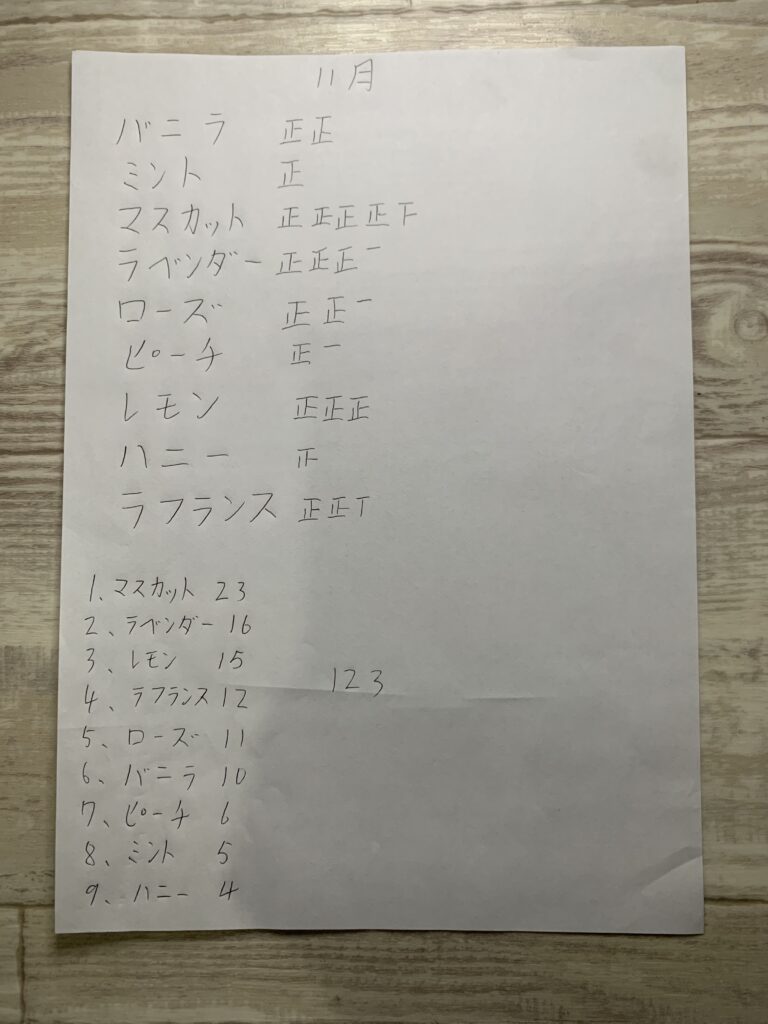 11月
バニラ 正正
ミント 正
マスカット 正正正正下
ラベンダー 正正正一
ローズ 正正一
ピーチ 正一
レモン 正正正
ハニー 𝍵
ラフランス 正正丅
1、マスカット 23
2、ラベンダー 16
3、レモン 15
4、ラフランス 12
5、ローズ 11
6、バニラ 10
7、ピーチ 6
8、ミント 5
9、ハニー 4
123